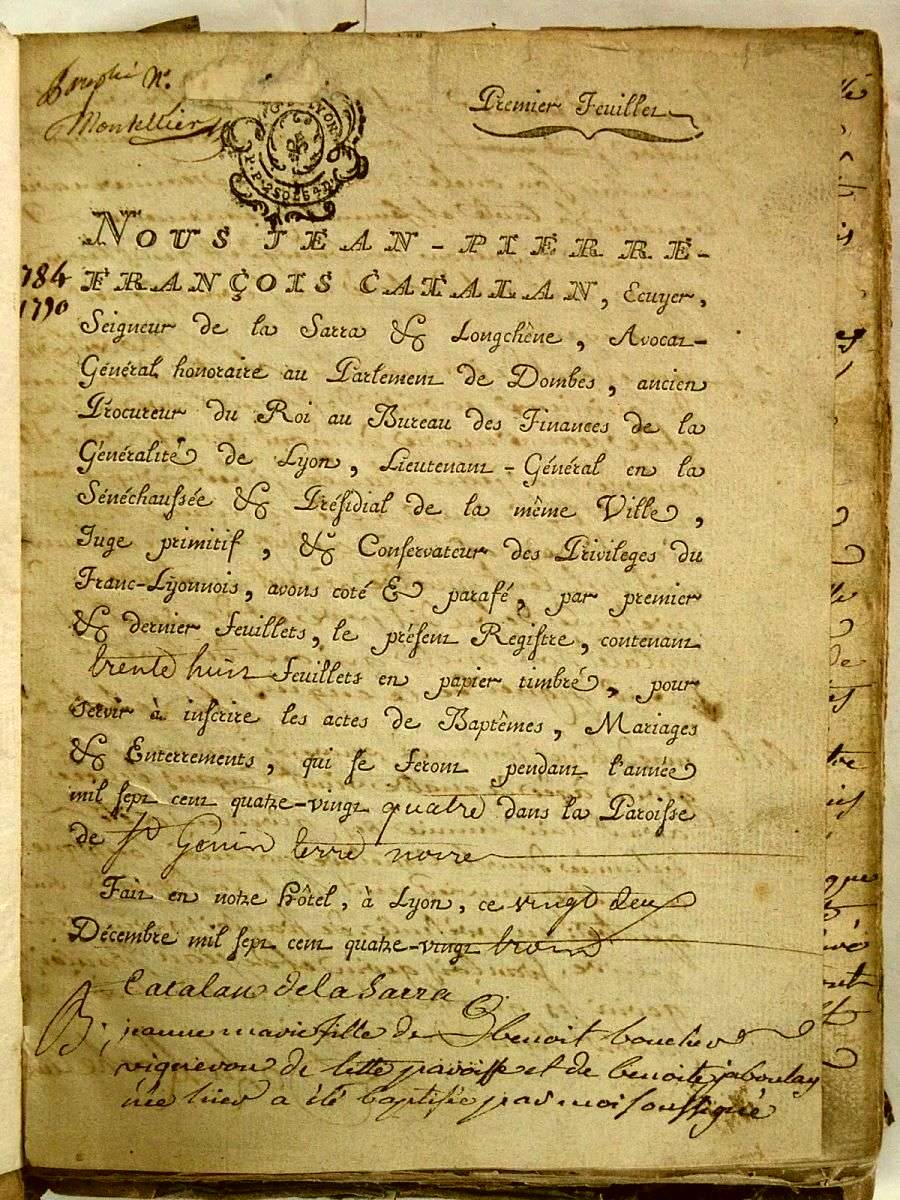 Paraphé N.
Montellier
Premier Feuillet
NOUS JEAN-PIERRE-
FRANÇOIS CATALAN, Ecuyer,
1784
1790
Seigneur de la Sarra & Longchêne, Avocat-
Général honoraire au Parlement de Dombes, ancien
Procureur du Roi au Bureau des Finances de la
Généralité de Lyon, Lieutenant-Général en la
Sénéchaussée & Présidial de la même Ville,
Juge primitif, & Conservateur des Privileges du
Franc-Lyonnois, avons coté & parafé, par premier
& dernier feuillets, le présent Registre, contenant
trente huit feuillets en papier timbré, pour
servir à inscrire les actes de Baptêmes, Mariages
& Enterrements, qui se feront pendant l'année
mil sept cent quatre-vingt quatre dans la Paroisse
de St Genin terre noire
Fait en notre hôtel, à Lyon, ce vingt deux
Décembre mil sept cent quatre-vingt trois
Catalan de la Sarra
B; jeanne marie fille de benoit boucher
vigneron de cette paroisse et de benoite jaboulay
née hier a été baptisée par moi soussigné